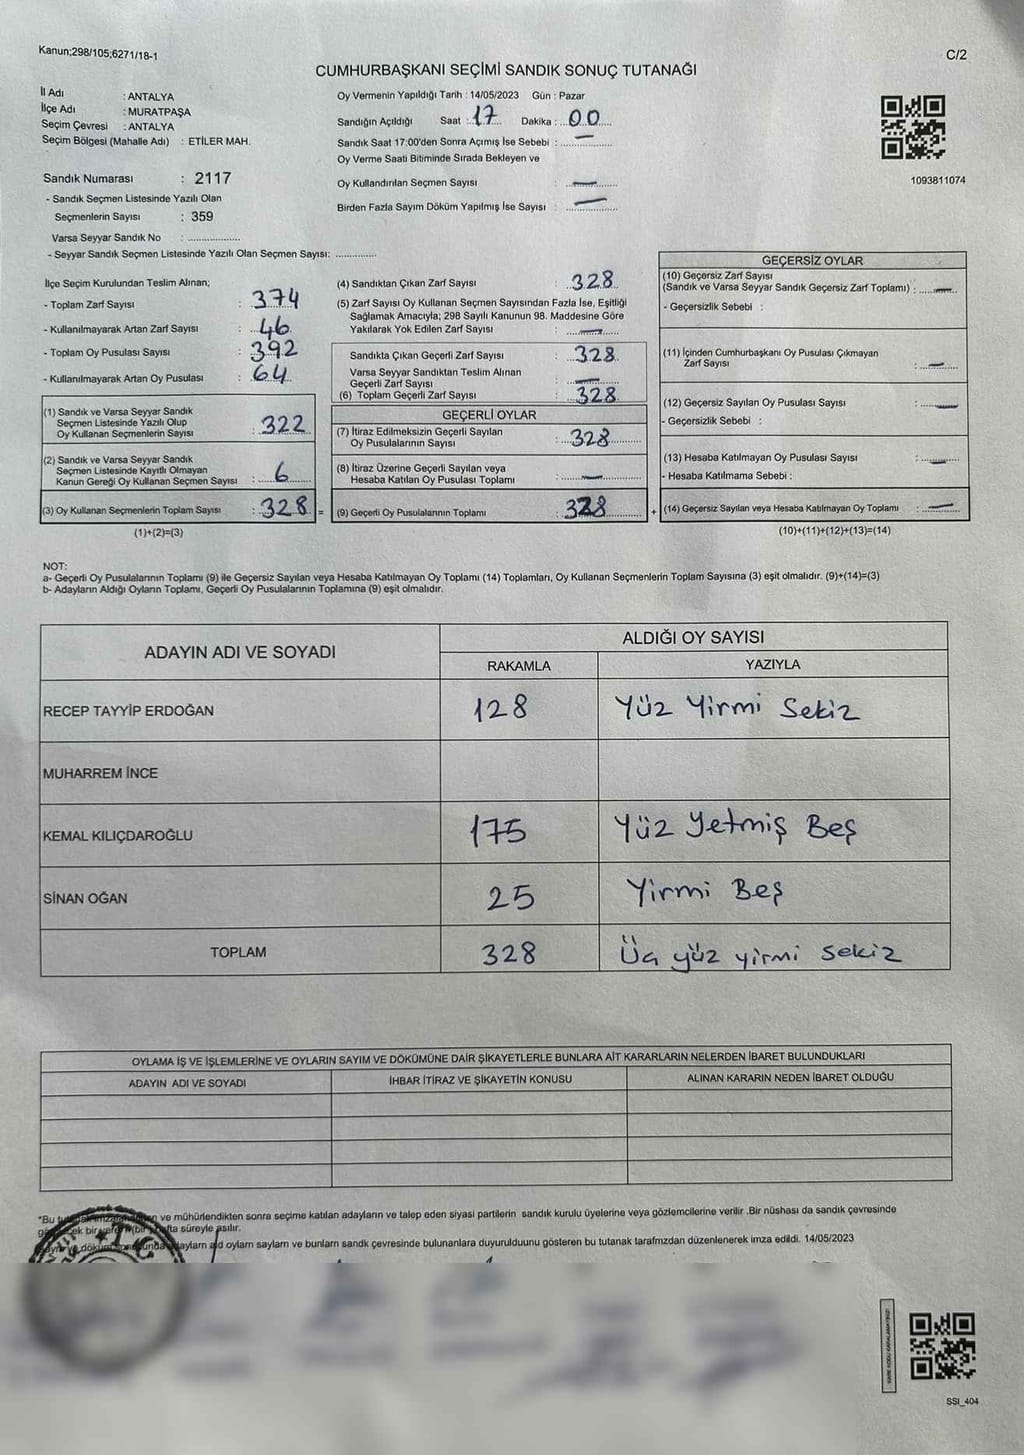 Kanun;298/105;6271/18-1
C/2
CUMHURBAŞKANI SEÇİMİ SANDIK SONUÇ TUTANAĞI
İl Adı : ANTALYA
İlçe Adı : MURATPAŞA
Seçim Çevresi : ANTALYA
Seçim Bölgesi (Mahalle Adı) : ETİLER MAH.
Sandık Numarası : 2117
- Sandık Seçmen Listesinde Yazılı Olan
Seçmenlerin Sayısı : 359
Varsa Seyyar Sandık No : ...................
- Seyyar Sandık Seçmen Listesinde Yazılı Olan Seçmen Sayısı: ..............
Oy Vermenin Yapıldığı Tarih : 14/05/2023 Gün : Pazar
Sandığın Açıldığı Saat : 17 Dakika : 00
Sandık Saat 17:00'den Sonra Açımış İse Sebebi : —
Oy Verme Saati Bitiminde Sırada Bekleyen ve
Oy Kullandırılan Seçmen Sayısı : —
Birden Fazla Sayım Döküm Yapılmış İse Sayısı : —
1093811074
İlçe Seçim Kurulundan Teslim Alınan;
- Toplam Zarf Sayısı : 374
- Kullanılmayarak Artan Zarf Sayısı : 46
- Toplam Oy Pusulası Sayısı : 392
- Kullanılmayarak Artan Oy Pusulası : 64
(1) Sandık ve Varsa Seyyar Sandık
Seçmen Listesinde Yazılı Olup
Oy Kullanan Seçmenlerin Sayısı : 322
(2) Sandık ve Varsa Seyyar Sandık
Seçmen Listesinde Kayıtlı Olmayan
Kanun Gereği Oy Kullanan Seçmen Sayısı : 6
(3) Oy Kullanan Seçmenlerin Toplam Sayısı : 328 =
(1)+(2)=(3)
(4) Sandıktan Çıkan Zarf Sayısı : 328
(5) Zarf Sayısı Oy Kullanan Seçmen Sayısından Fazla İse, Eşitliği
Sağlamak Amacıyla; 298 Sayılı Kanunun 98. Maddesine Göre
Yakılarak Yok Edilen Zarf Sayısı : —
Sandıkta Çıkan Geçerli Zarf Sayısı : 328
Varsa Seyyar Sandıktan Teslim Alınan
Geçerli Zarf Sayısı : —
(6) Toplam Geçerli Zarf Sayısı : 328
GEÇERLİ OYLAR
(7) İtiraz Edilmeksizin Geçerli Sayılan
Oy Pusulalarının Sayısı : 328
(8) İtiraz Üzerine Geçerli Sayılan veya
Hesaba Katılan Oy Pusulası Toplamı : —
(9) Geçerli Oy Pusulalarının Toplamı : 328 +
GEÇERSİZ OYLAR
(10) Geçersiz Zarf Sayısı
(Sandık ve Varsa Seyyar Sandık Geçersiz Zarf Toplamı) : —
- Geçersizlik Sebebi :
(11) İçinden Cumhurbaşkanı Oy Pusulası Çıkmayan
Zarf Sayısı : —
(12) Geçersiz Sayılan Oy Pusulası Sayısı : —
- Geçersizlik Sebebi :
(13) Hesaba Katılmayan Oy Pusulası Sayısı : —
- Hesaba Katılmama Sebebi :
(14) Geçersiz Sayılan veya Hesaba Katılmayan Oy Toplamı : —
(10)+(11)+(12)+(13)=(14)
NOT:
a- Geçerli Oy Pusulalarının Toplamı (9) ile Geçersiz Sayılan veya Hesaba Katılmayan Oy Toplamı (14) Toplamları, Oy Kullanan Seçmenlerin Toplam Sayısına (3) eşit olmalıdır. (9)+(14)=(3)
b- Adayların Aldığı Oyların Toplamı, Geçerli Oy Pusulalarının Toplamına (9) eşit olmalıdır.
ADAYIN ADI VE SOYADI
ALDIĞI OY SAYISI
RAKAMLA YAZIYLA
RECEP TAYYİP ERDOĞAN 128 Yüz Yirmi Sekiz
MUHARREM İNCE
KEMAL KILIÇDAROĞLU 175 Yüz Yetmiş Beş
SİNAN OĞAN 25 Yirmi Beş
TOPLAM 328 Üç yüz yirmi sekiz
OYLAMA İŞ VE İŞLEMLERİNE VE OYLARIN SAYIM VE DÖKÜMÜNE DAİR ŞİKAYETLERLE BUNLARA AİT KARARLARIN NELERDEN İBARET BULUNDUKLARI
ADAYIN ADI VE SOYADI İHBAR İTİRAZ VE ŞİKAYETİN KONUSU ALINAN KARARIN NEDEN İBARET OLDUĞU
*Bu ve mühürlendikten sonra seçime katılan adayların ve talep eden siyasi partilerin sandık kurulu üyelerine veya gözlemcilerine verilir .Bir nüshası da sandık çevresinde
bir hafta süreyle asılır.
oyların sayların ve bunların sandk çevresinde bulunanlara duyurulduunu gösteren bu tutanak tarafmzdan düzenlenerek imza edildi. 14/05/2023
T.C.
SSI_404